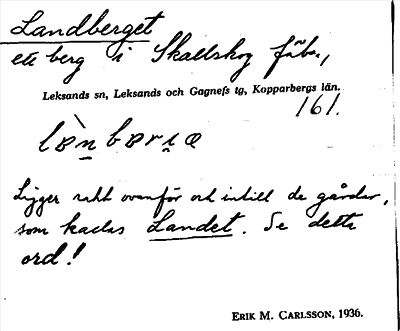 Landberget
ett berg i Skallskog fäb.,
Leksands sn, Leksands och Gagnefs tg, Kopparbergs län.
161.
Ligger rakt ovanför och intill de gårdar,
som kallas Landet. Se detta
ord!
ERIK M. CARLSSON, 1936.